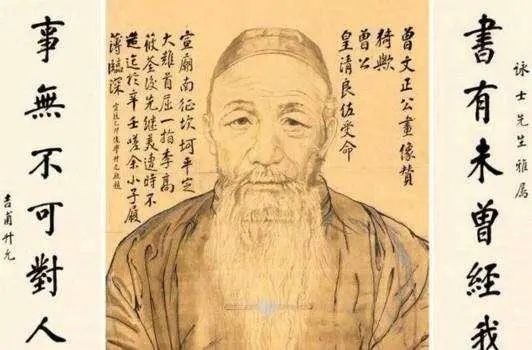 詠士先生雅属
書有未曾經我
曾文正公畫像贊
猗歟
曾公
皇清良佐受命
宣廟南征坎坷平定
大難首屈一指李高
筱荃後先繼美遭時不
造迄於辛壬嗟余小子履
薄臨深
事無不可對人
吉甫升允